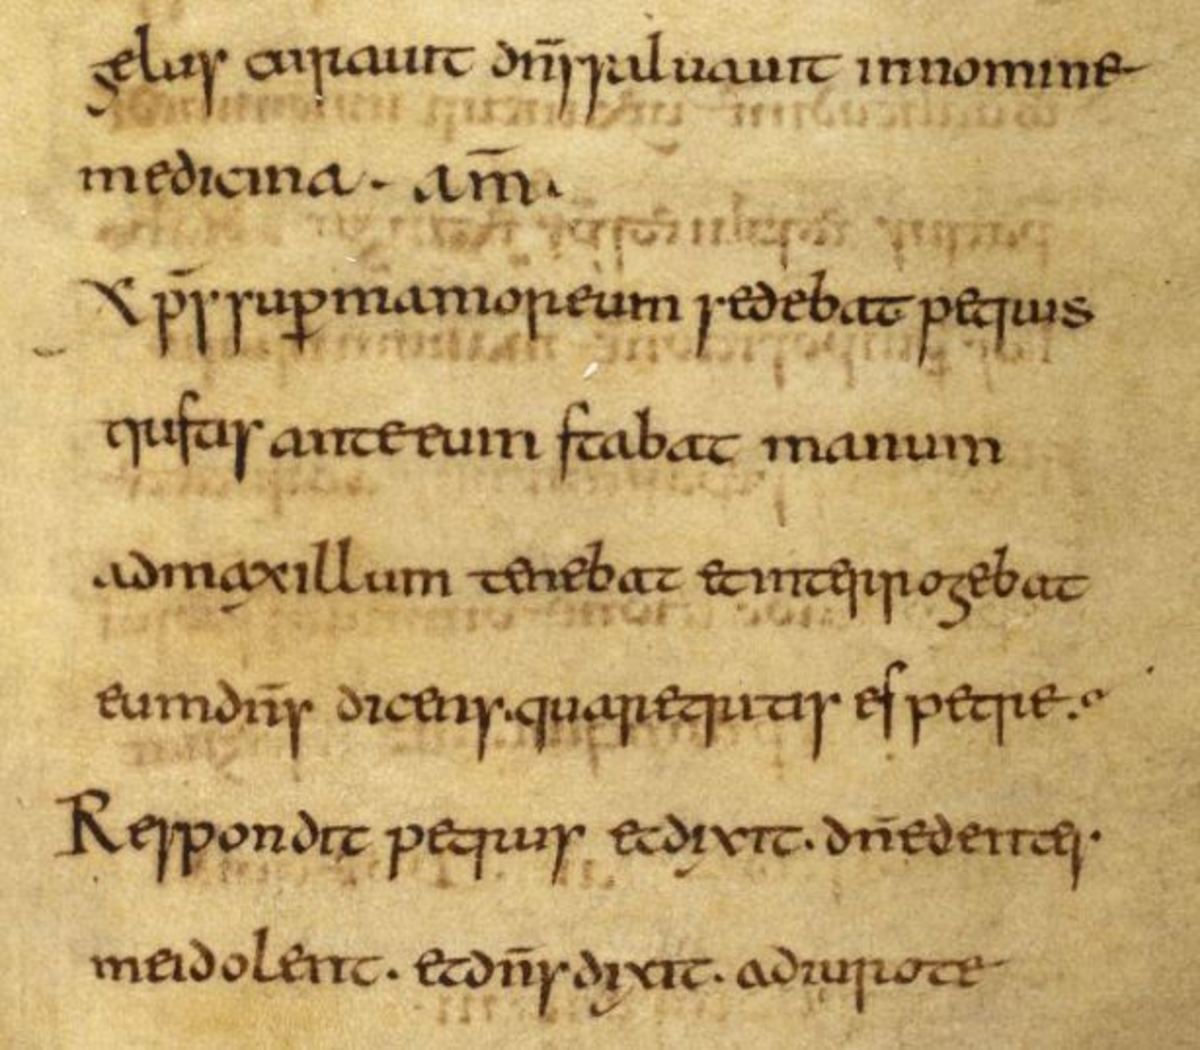 gelus curauit dn̄s saluauit innomine
medicina. am̄.
Xp̄s sup mamoreum sedebat petrus
tristis anteeum stabat manum
admaxillum tenebat etinterrogebat
eumdn̄s dicens. quaretristis es petre.
Respondit petrus etdixit. dn̄edentes.
meidolent. etdn̄sdixit. adiurote